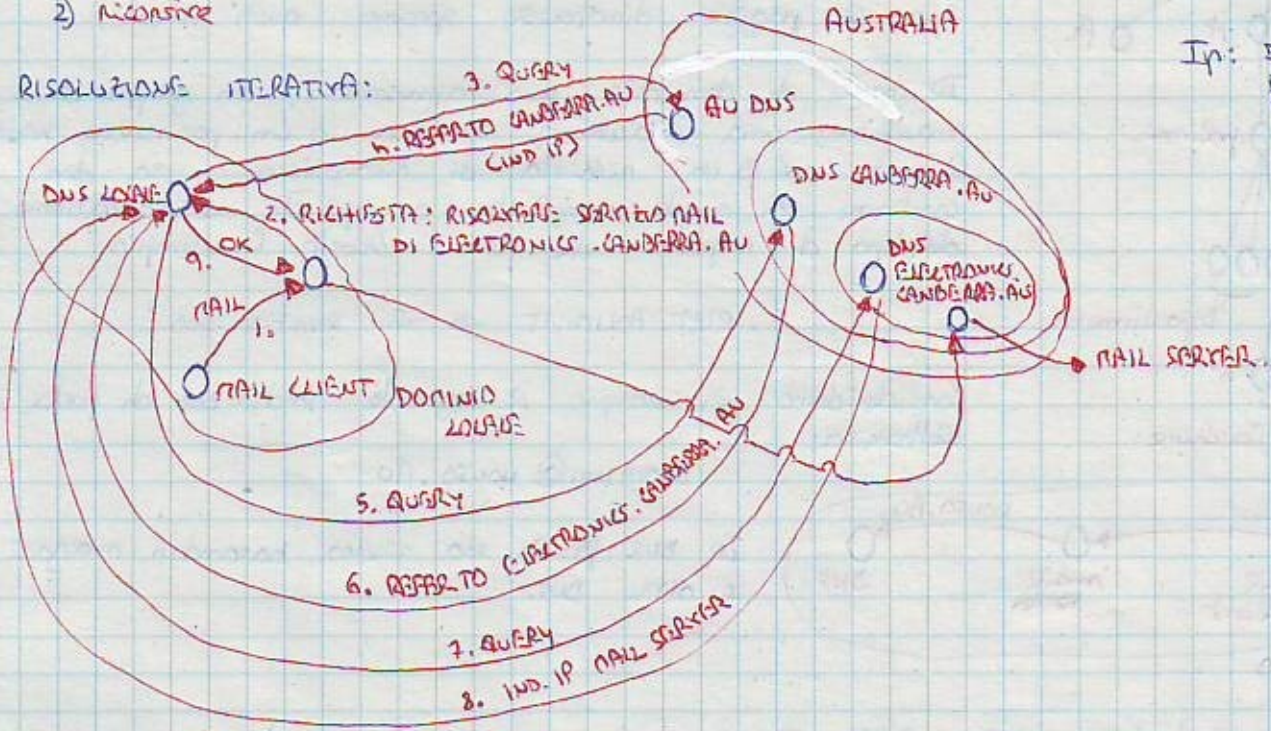 2) RICORSIVE
AUSTRALIA
RISOLUZIONE ITERATIVA:
3. QUERY
4. REFER TO CANBERRA.AU
(IND IP)
AU DNS
DNS LOCALE
DNS CANBERRA.AU
2. RICHIESTA: RISOLVERE SERVIZIO MAIL
DI ELECTRONICS.CANBERRA.AU
9. OK
DNS
ELECTRONICS.
CANBERRA.AU
MAIL
1.
MAIL SERVER.
MAIL CLIENT
DOMINIO
LOCALE
5. QUERY
6. REFER TO ELECTRONICS.CANBERRA.AU
7. QUERY
8. IND. IP MAIL SERVER